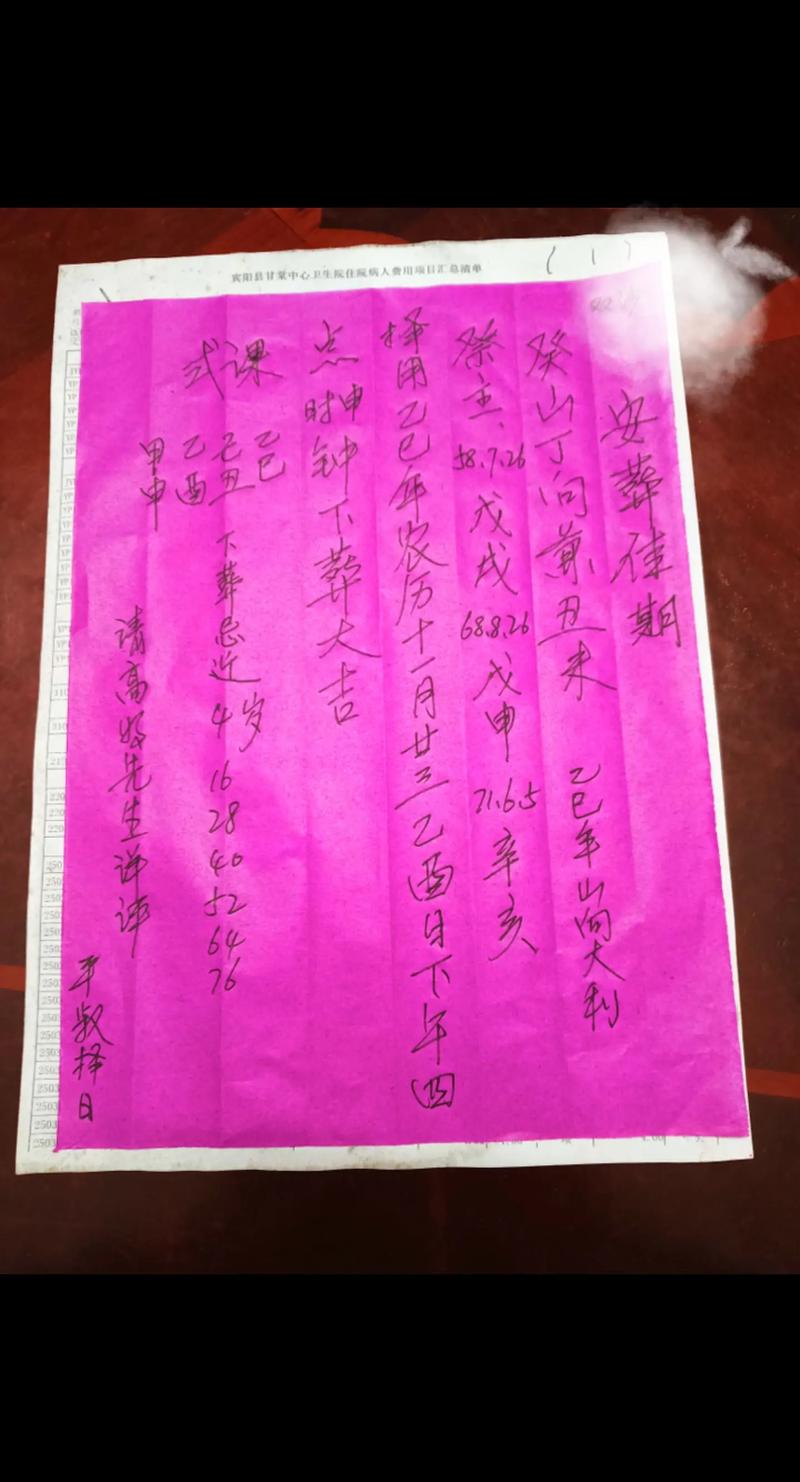 宾阳县甘棠中心卫生院住院病人费用项目汇总清单
(1)
安葬佳期
癸山丁向兼丑未 乙巳年山向大利
祭主、58.7.26戊戌 68.8.26戊申 71.6.5辛亥
择用乙巳年农历十一月廿三乙酉日下午四
点申时钟下葬大吉
课式
乙巳
己丑
乙酉
甲申
下葬忌近4岁 16 28 40 52 64 76
请高好先生详评
平叔择日